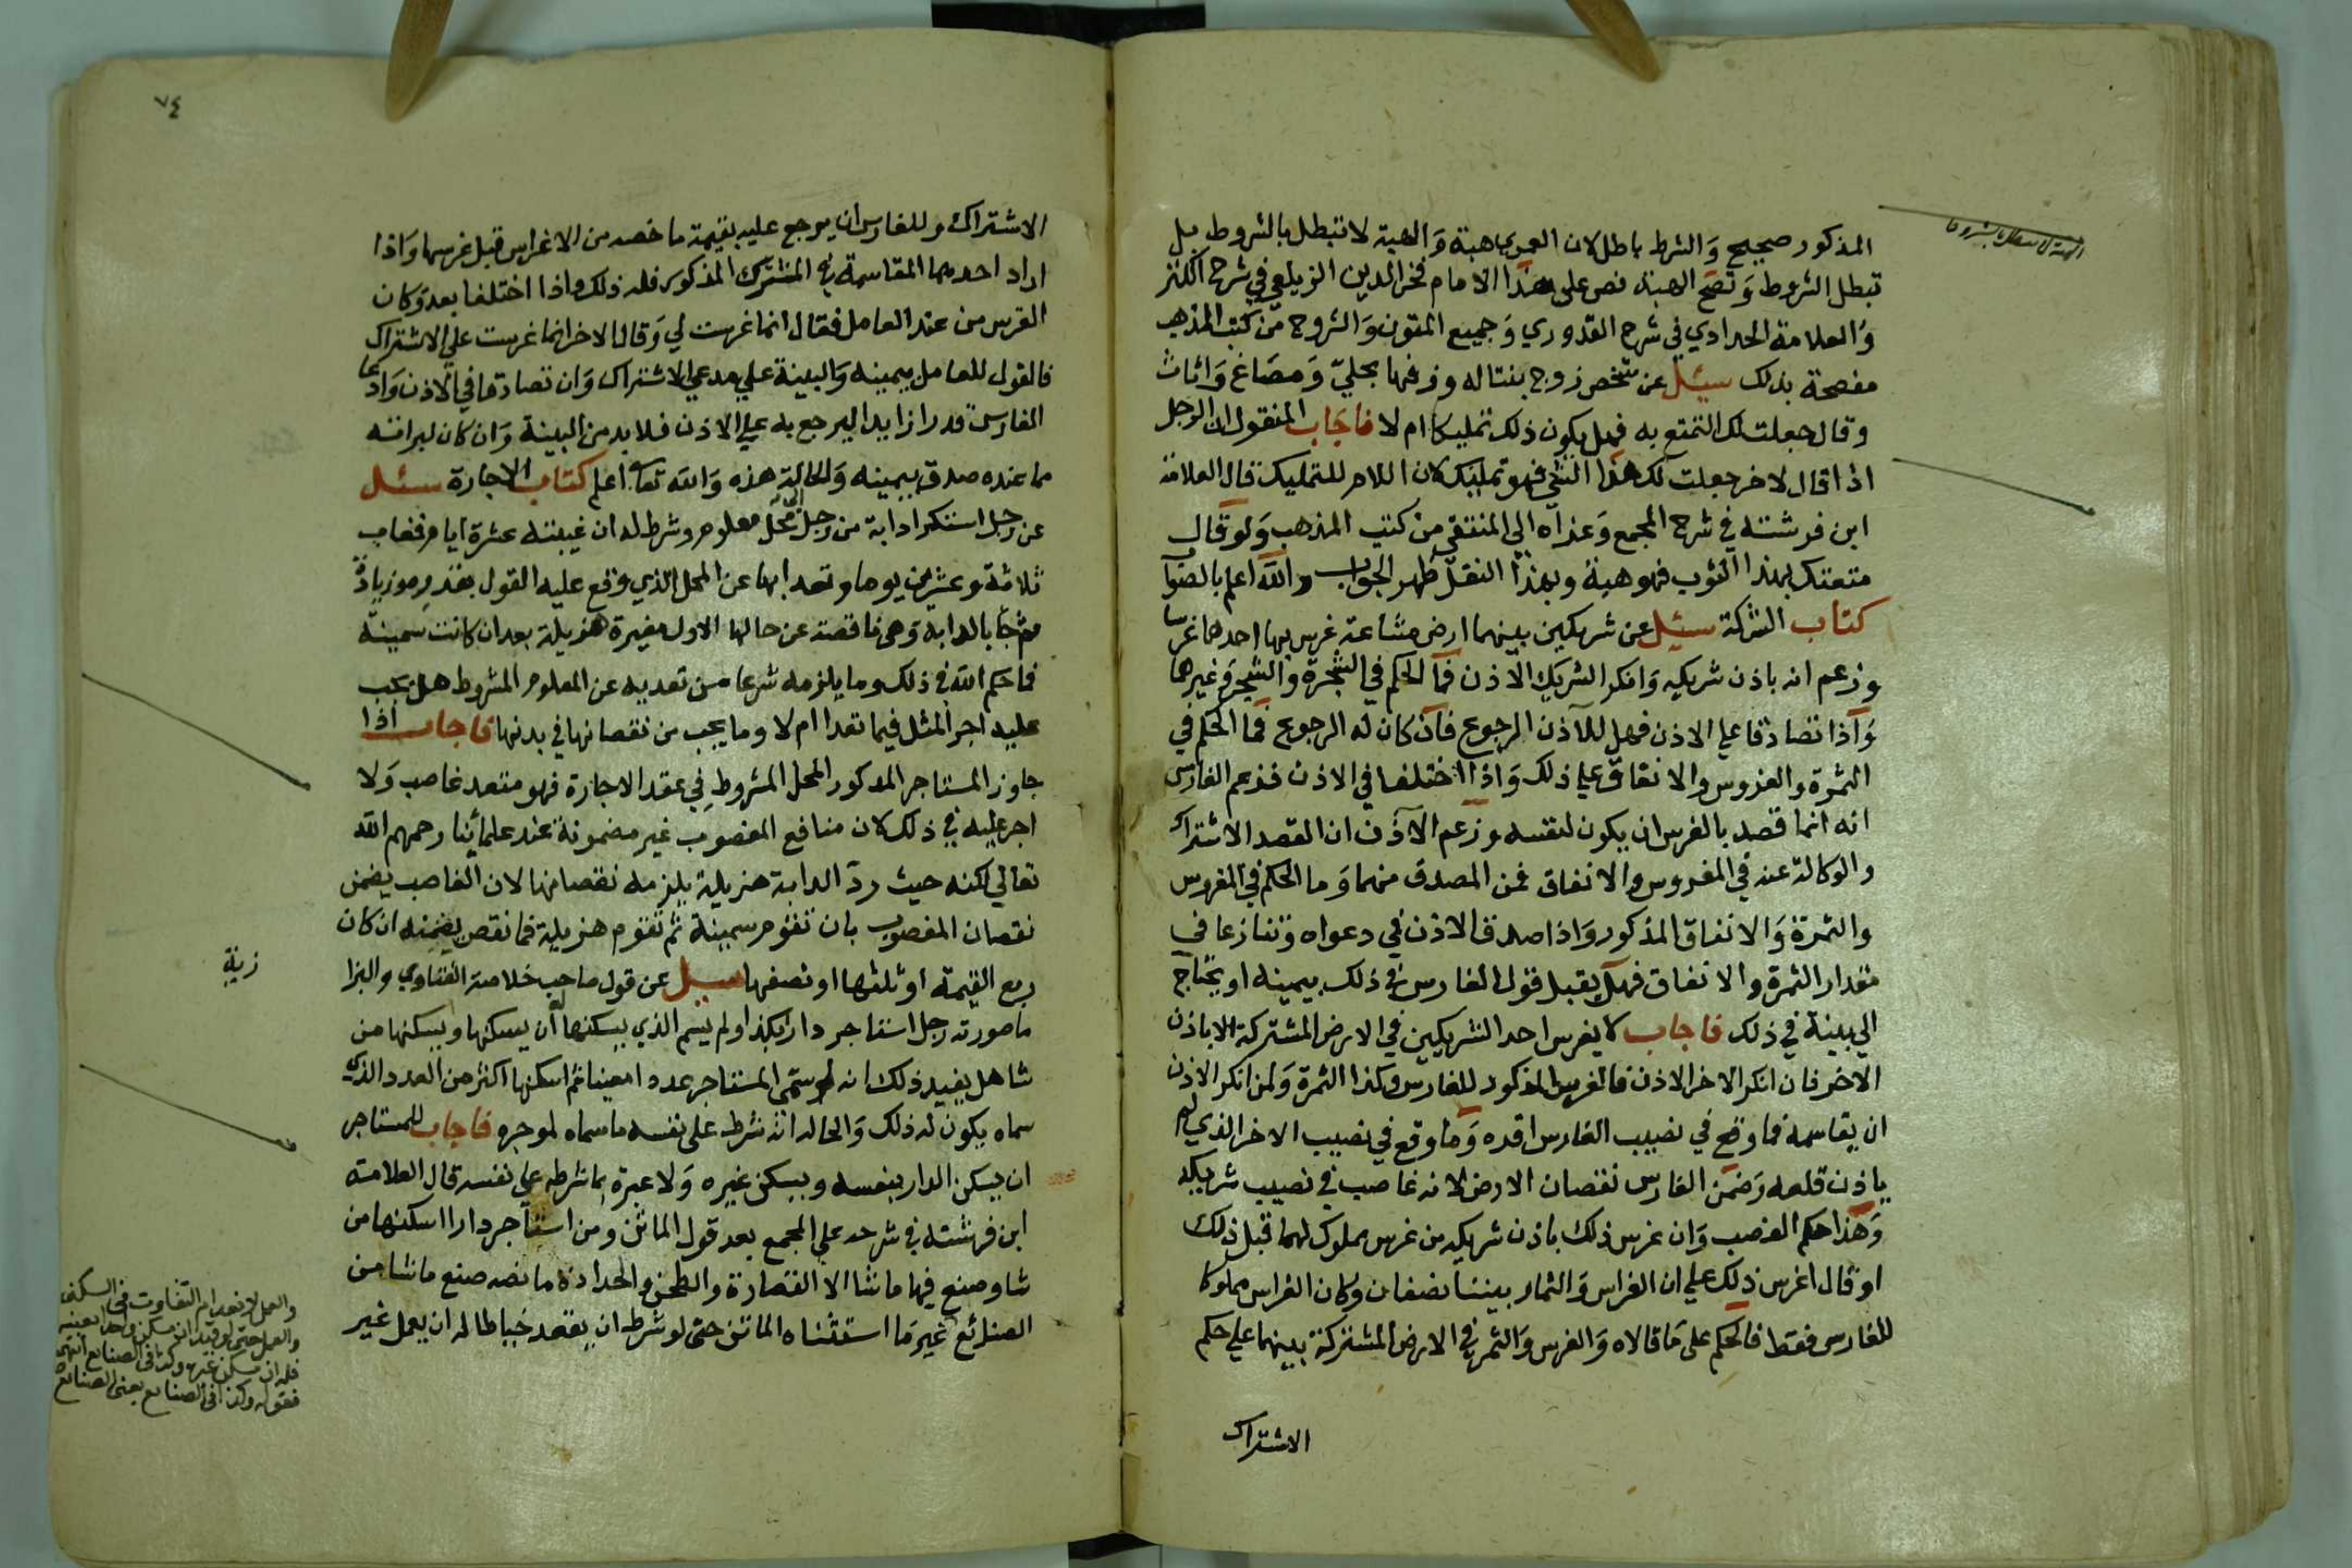 المذكور صحيح وَالشرط باطل لان العمرى هبة وَالهبة لا تبطل بالشروط بل
تبطل الشروط وَتصح الهبة نص على هذا الامام فخر الدين الزيلعي في شرح الكنز
وَالعلامة الحدادي في شرح القدوري وَجميع المتون وَالشروح من كتب المذهب
مفصحة بذلك سيئل عن شخص زوج بنتا له وزفها بحليّ وَمصَاغ وَاثاث
وقال جعلت لك التمتع به فهل يكون ذلك تمليكا ام لا فاجَاب المنقول ان الرجل
اذا قال لاخر جعلت لك هذا الشي فهو تمليك لان اللام للتمليك قال العلامة
ابن فرشته في شرح المجمع وَعزاه الى المنتقى من كتب المذهب وَلو قال
متعتك بهذا الثوب فهو هبة وبهذا النقل ظهر الجواب والله اعلم بالصواب
كتاب الشركة سيئل عن شريكين بينهما ارض مشاعة غرس بها احدهما غرسا
وزعم انه باذن شريكه وَانكر الشريك الاذن فما الحكم في الشجرة والشجر وَغيرها
وَاذا تصادقا علي الاذن فهل للآذن الرجوع فان كان له الرجوع فما الحكم في
الثمرة والغروس والانفاق علي ذلك وَاذا اختلفا في الاذن فزعم الغارس
انه انما قصد بالغرس ان يكون لنفسه وزعم الآذن ان القصد الاشتراك
والوكالة عنه في المغروس والانفاق فمن المصدق منهما وَما الحكم في المغروس
والثمرة وَالانفاق المذكور وَاذا صدق الاذن في دعواه وتنازعا في
مقدار الثمرة والانفاق فهل يقبل قول الغارس في ذلك بيمينه او يحتاج
الي بينة في ذلك فاجاب لا يغرس احد الشريكين في الارض المشتركة الا باذن
الاخر فان انكر الاخر الاذن فالغرس المذكور للغارس وكذا الثمرة وَلمن انكر الاذن
ان يقاسمه فما وقع في نصيب الغارس اقره وَما وقع في نصيب الاخر الذي لم
ياذن قلعه وَضمن الغارس نقصان الارض لانه غاصب في نصيب شريكه
وَهذا حكم الغصب وَان غرس ذلك باذن شريكه من غرس مملوك لهما قبل ذلك
او قال اغرس ذلك علي ان الغراس وَالثمار بيننا نصفان وكان الغراس مملوكا
للغارس فقط فالحكم على مَا قالاه وَالغرس وَالثمر في الارض المشتركة بينهما علي حكم
الاشتراك
٧٤
الاشتراك وللغارس ان يرجع عليه بقيمة ما خصه من الاغراس قبل غرسها وَاذا
اراد احدهما المقاسمة في المشترك المذكور فله ذلك واذا اختلفا بعد وَكان
الغرس من عند العامل فقال انما غرست لي وَقال الاخر انما غرست علي الاشتراك
فالقول للعامل بيمينه وَالبينة علي مدعي الاشتراك وَان تصادقا في الاذن وَادعى
الغارس قدرا زايدا ليرجع به علي الاذن فلا بد من البينة وَان كان لبراءته
مما عنده صدق بيمينه وَالحالة هذه وَالله تعالى اعلم كتاب الاجارة سئل
عن رجل استكرا دابة من رجل الى محل معلوم وشرط له ان غيبته عشرة ايام فغاب
ثلاثة وعشرين يوما وتعد ابها عن المحل الذي وقع عليه القول بقدر موز يادة
ثم جَا بالدابة وَهى ناقصة عن حالها الاول مغيرة هزيلة بعد ان كانت سمينة
فما حكم الله في ذلك وما يلزمه شرعا من تعديه عن المعلوم المشروط هل يجب
عليه اجر المثل فيما تعدا ام لا وما يجب من نقصانها في بدنها فاجاب اذا
جاوز المستاجر المدكور المحل المشروط في عقد الاجارة فهو متعد غاصب وَلا
اجر عليه في ذلك لان منافع المغصوب غير مضمونة عند علمائنا رحمهم الله
تعالي لكنه حيث ردّ الدابة هزيلة يلزمه نقصانها لان الغاصب يضمن
نقصان المغصوب بان تقوم سمينة ثم تقوم هزيلة فما نقص يضمنه ان كان
ربع القيمة او ثلثها او نصفها سيل عن قول صاحب خلاصة الفتاوي والبزا
زية
ما صورته رجل استاجر دارا بكذا ولم يسم الذي يسكنها له ان يسكنها ويسكنها من
شا هل يفيد ذلك انه لو سمّى المستاجر عددا معينا ثم اسكنها اكثر من العدد الذي
سماه يكون له ذلك وَالحالة انه شرط على نفسه ما سماه لموجره فاجاب للمستاجر
ان يسكن الدار بنفسه ويسكن غيره وَلا عبرة بما شرطه علي نفسه قال العلامة
ابن فرشته في شرحه علي المجمع بعد قول الماتن ومن استاجر دارا اسكنها من
شا وصنع فيها ما شا الا القصارة والطحن والحدادة ما نصه صنع ما شا من
الصنائع غير مَا استثناه الماتن حتى لو شرط ان يقعد خياطا له ان يعمل غير
والعمل لانعدام التفاوت في السكنى
والعمل حتى لو قيد ان يسكن واحدا بعينه
فله ان يسكن غيره وكذا في الصنايع انتهى
فقوله وكذا في الصنايع يعنى الصنايع